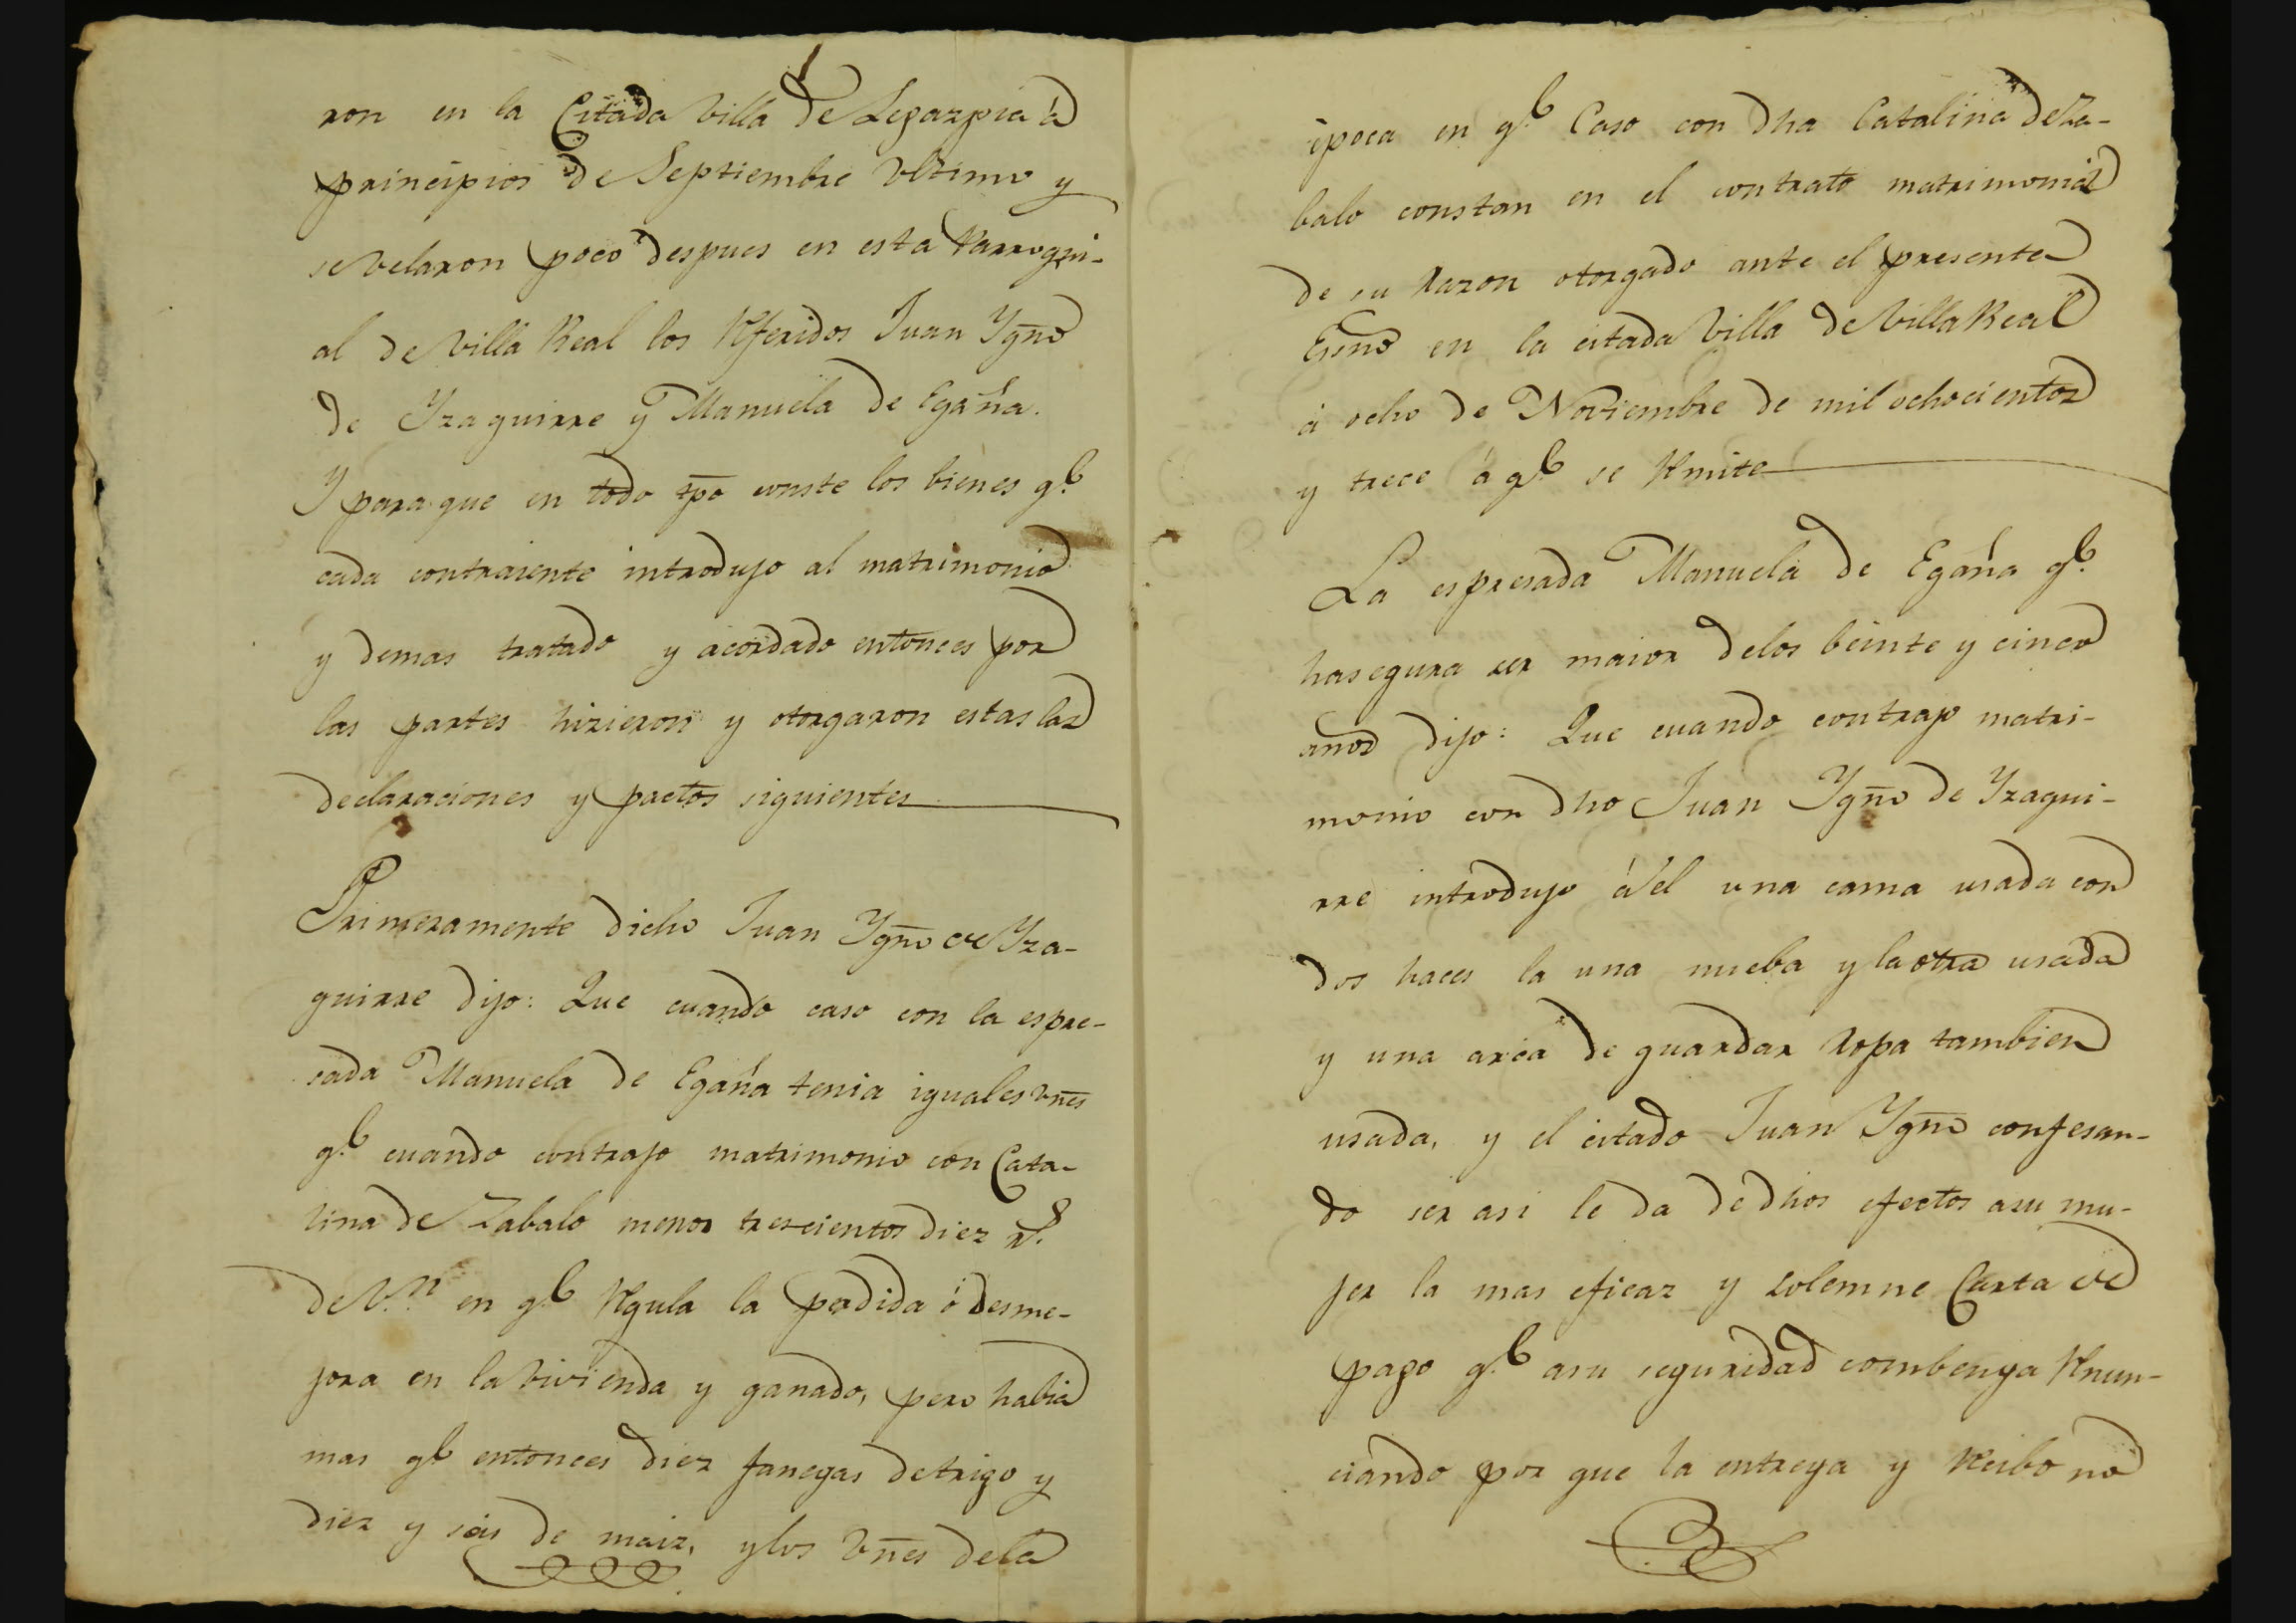 ron en la Citada Villa de Legazpia á
principios de Septiembre Ultimo y
se Velaron poco despues en esta Parroqui-
al de Villa Real los Rferidos Juan Ygno
de Yzaguirre y Manuela de Egaña.
Y para que en todo tpo conste los bienes q.e
cada contraiente introdujo al matrimonio
y demas tratado y acordado entonces por
las partes hizieron y otorgaron estas las
declaraciones y pactos siguientes
Primeramente dicho Juan Ygno de Yza-
guirre dijo: Que cuando caso con la espre-
sada Manuela de Egaña tenia iguales Vnes
q.e cuando contrajo matrimonio con Cata-
lina de Zabalo menos trescientos diez r.s
de V.n en q.e Rgula la perdida ó desme-
jora en la Vivienda y ganado, pero habia
mas q.e entonces diez fanegas de trigo y
diez y seis de maiz, y los Vnes de la
epoca en q.e Caso con dha Catalina de Za-
balo constan en el contrato matrimonial
de su razon otorgado ante el presente
Essno en la citada Villa de Villa Real
á ocho de Noviembre de mil ochocientos
y trece á q.e se Rmite
La espresada Manuela de Egaña q.e
hasegura ser maior de los beinte y cinco
anos dijo: Que cuando contrajo matri-
monio con dho Juan Ygno de Yzagui-
rre introdujo á el una cama usada con
dos haces la una nueba y la otra usada
y una arca de guardar ropa tambien
usada, y el citado Juan Ygno confesan-
do ser asi le da de dhos efectos asu mu-
jer la mas eficaz y solemne Carta de
pago q.e asu seguridad combenga Rnun-
ciando por que la entrega y Rcibo no